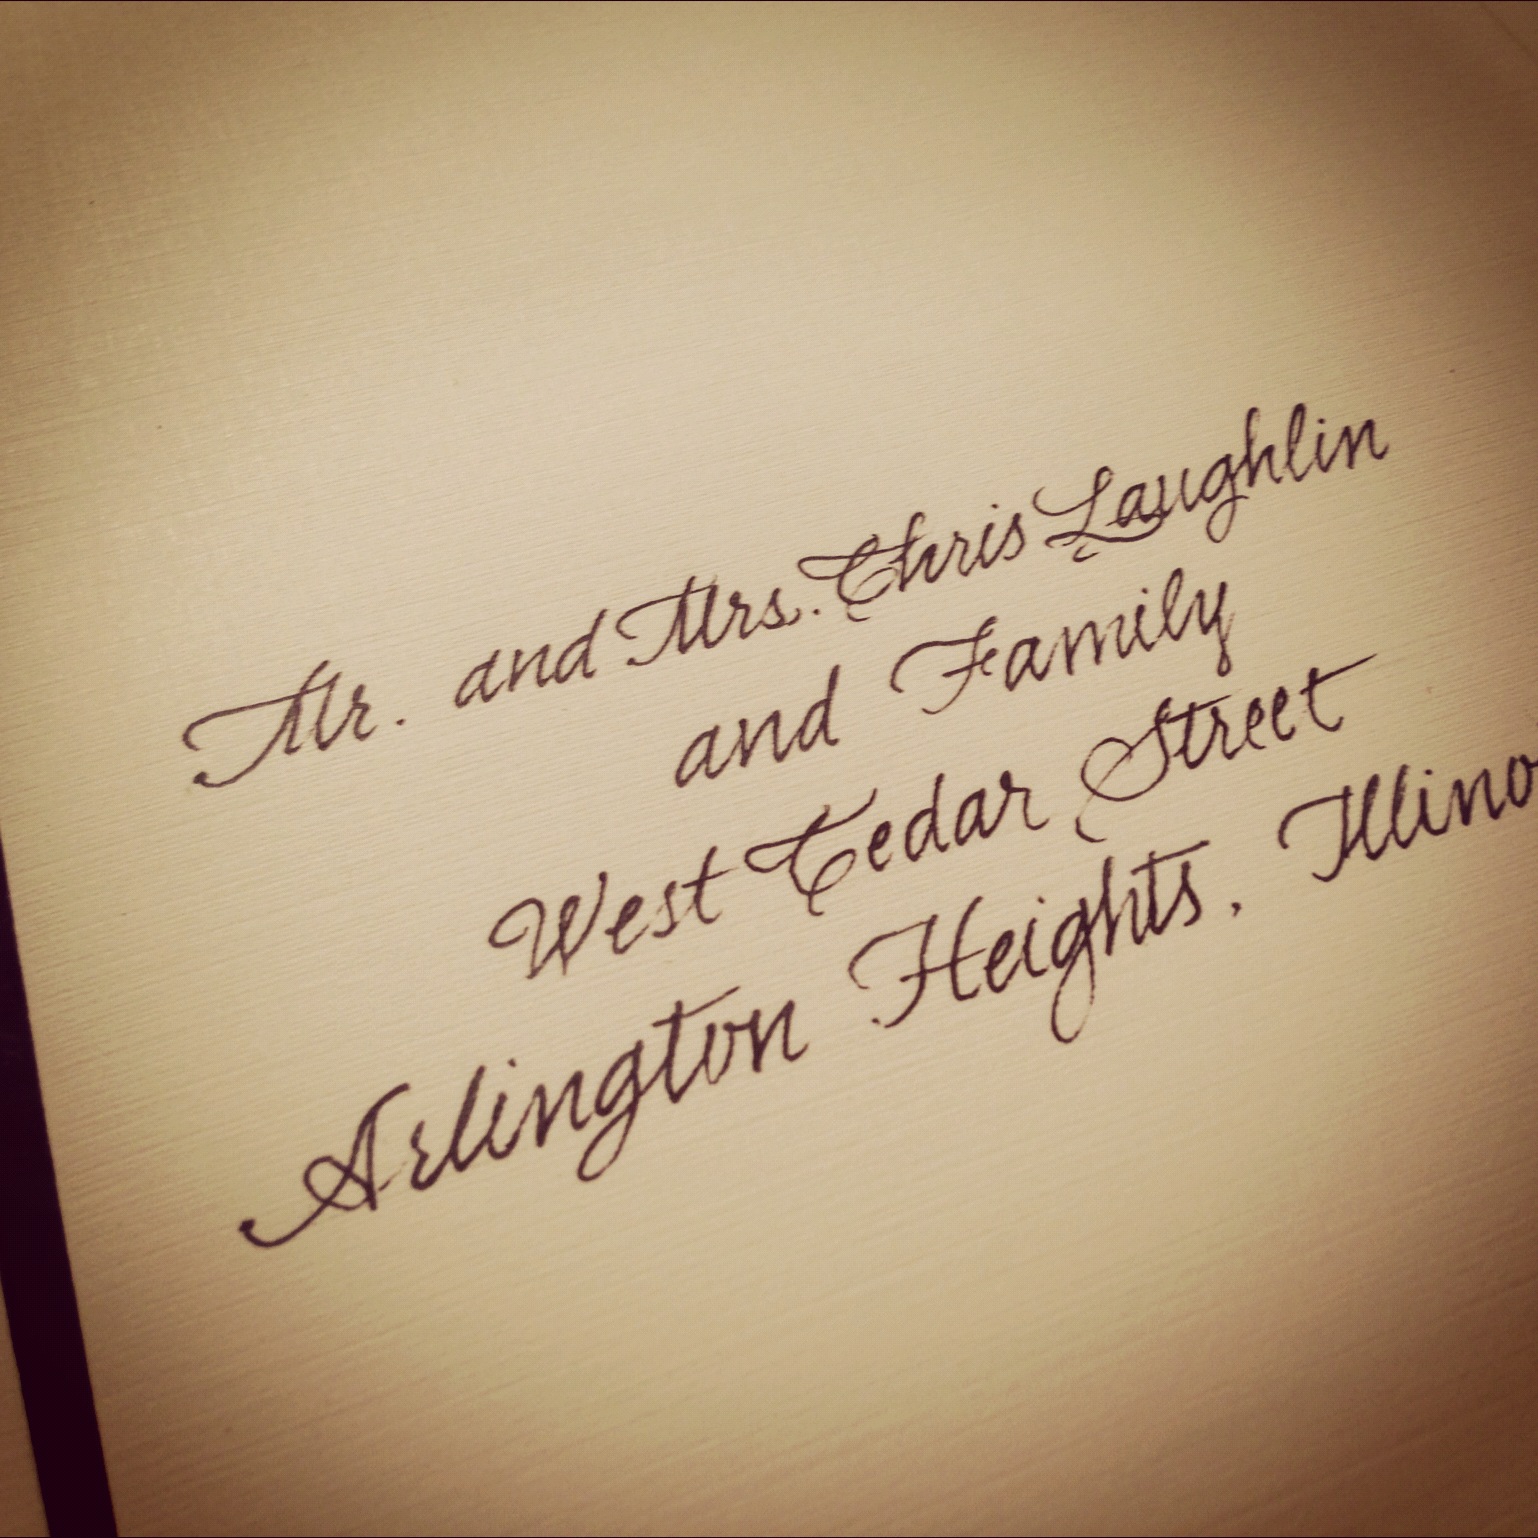 Mr. and Mrs. Chris Laughlin
and Family
West Cedar Street
Arlington Heights, Illino